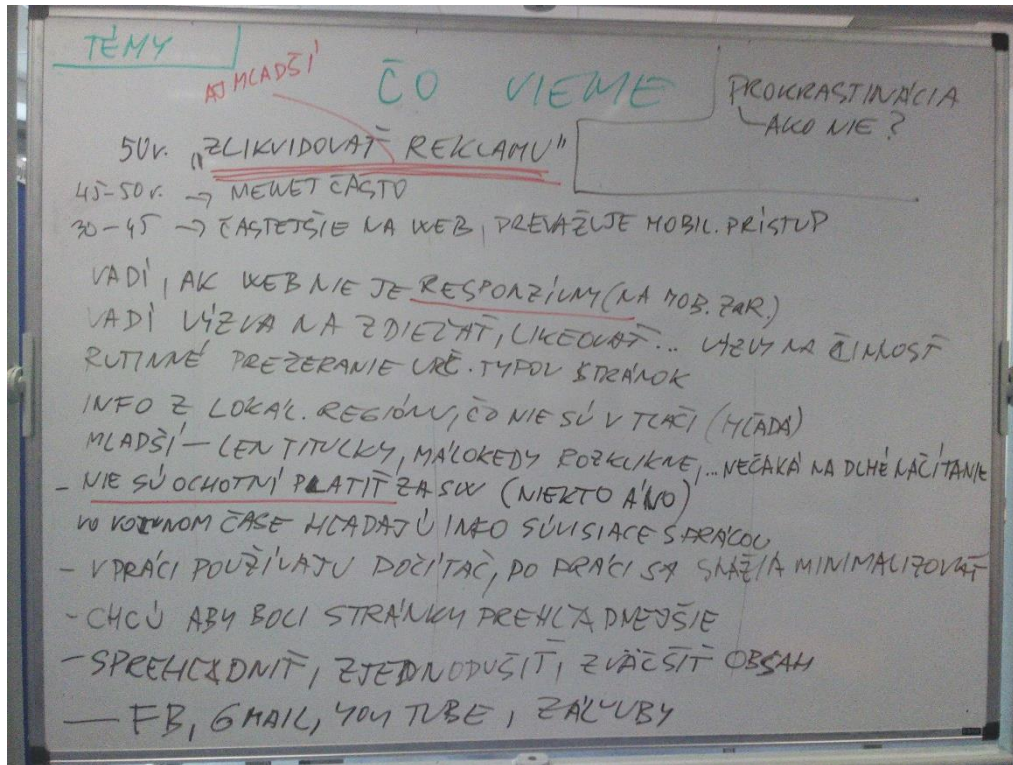 TÉMY
AJ MLADŠÍ
ČO VIEME
PROKRASTINÁCIA
AKO NIE?
50r. "ZLIKVIDOVAŤ REKLAMU"
45-50r. → MENEJ ČASTO
30-45 → ČASTEJŠIE NA WEB, PREVAŽUJE MOBIL. PRÍSTUP
VADÍ, AK WEB NIE JE RESPONZÍVNY (NA MOB. ZAR.)
VADÍ VÝZVA NA ZDIEĽAŤ, LIKEOVAŤ... VÝZVY NA ČINNOSŤ
RUTINNÉ PREZERANIE URČ. TYPOV STRÁNOK
INFO Z LOKÁL. REGIÓNU, ČO NIE SÚ V TLAČI (HĽADÁ)
MLADŠÍ - LEN TITULKY, MÁLOKEDY ROZKLIKNE, ...NEČAKÁ NA DLHÉ NAČÍTANIE
- NIE SÚ OCHOTNÍ PLATIŤ ZA SW (NIEKTO ÁNO)
VO VOĽNOM ČASE HĽADAJÚ INFO SÚVISIACE S PRÁCOU
- V PRÁCI POUŽÍVAJU POČÍTAČ, PO PRÁCI SA SNAŽIA MINIMALIZOVAŤ
- CHCÚ ABY BOLI STRÁNKY PREHĽADNEJŠIE
- SPREHĽADNIŤ, ZJEDNODUŠIŤ, ZVÄČŠIŤ OBSAH
— FB, GMAIL, YOU TUBE, ZÁĽUBY